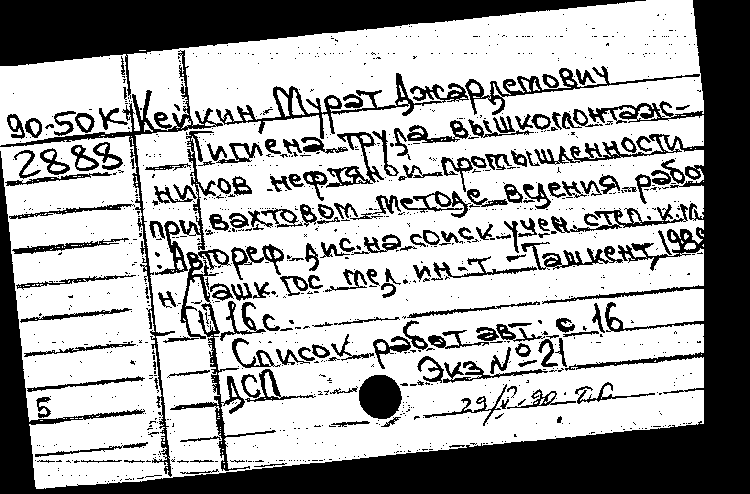 90-50К Кейкин, Мурат Джардемович
2888 Гигиена труда вышкомонтаж-
ников нефтяной промышленности
при вахтовом методе ведения работ
: Автореф. дис. на соиск. учен. степ. к.м.
н. / Ташк. гос. мед. ин-т. - Ташкент, 1988
16 с.
Список работ авт.: с. 16
ДСП Экз № 21
5